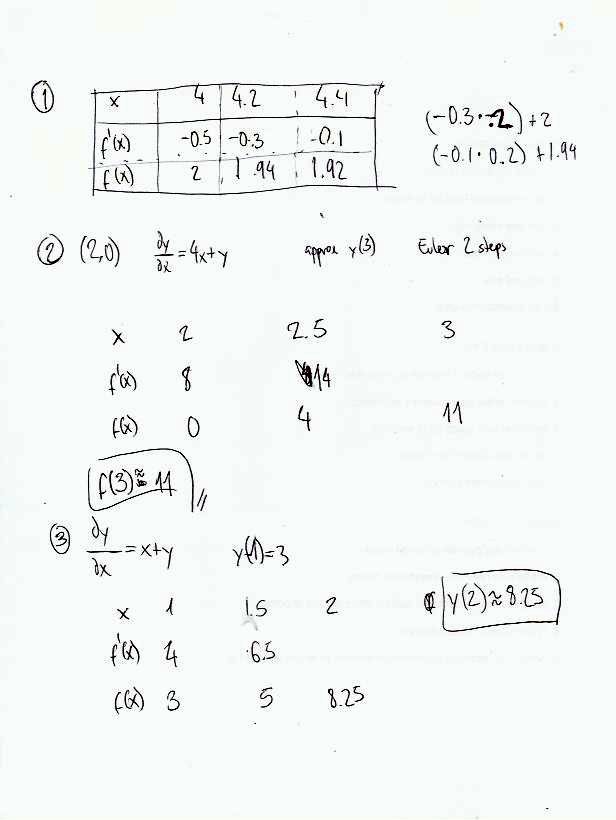 ① x 4 4.2 4.4
f'(x) -0.5 -0.3 -0.1
f(x) 2 1.94 1.92
(-0.3·.2)+2
(-0.1·0.2)+1.94
② (2,0) ∂y/∂x=4x+y approx y(3) Euler 2 steps
x 2 2.5 3
f'(x) 8 14
f(x) 0 4 11
f(3)≈11
③ ∂y/∂x=x+y y(1)=3
x 1 1.5 2
y(2)≈8.25
f'(x) 4 6.5
f(x) 3 5 8.25